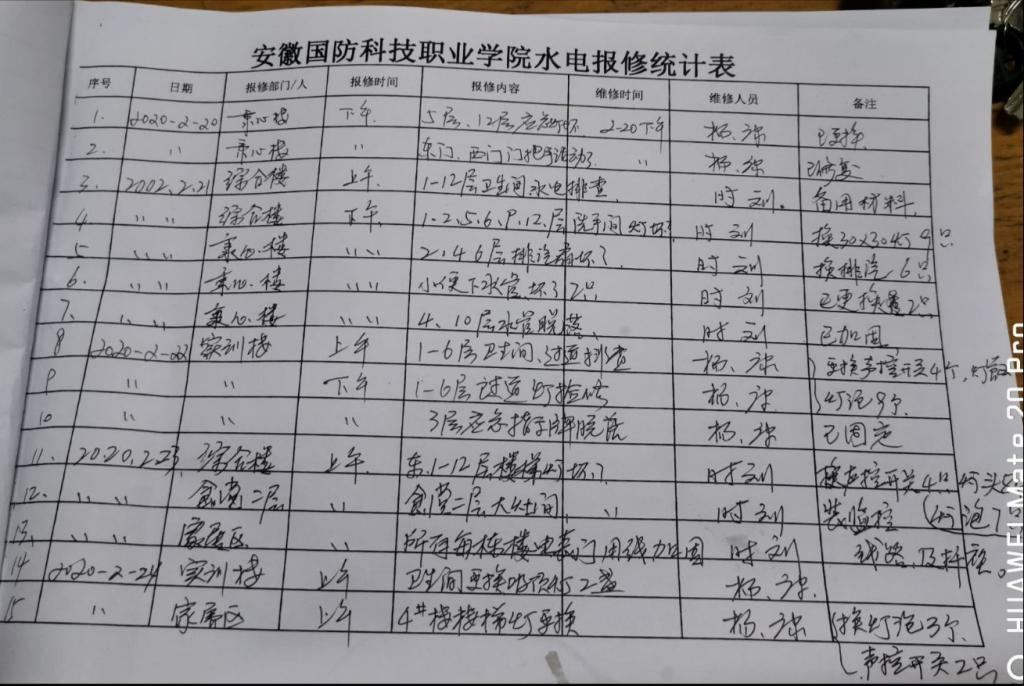 安徽国防科技职业学院水电报修统计表
序号 日期 报修部门/人 报修时间 报修内容 维修时间 维修人员 备注
1. 2020-2-20 秉心楼 下午 5层、12层应急灯坏 2-20下午 杨、 已更换
2. 〃 秉心楼 〃 东门、西门门把手活动了. 〃 杨、 已修复
3. 2002.2.21 综合楼 上午. 1-12层卫生间水电排查 时 刘. 备用材料.
4. 〃 〃 综合楼 下午. 1.2.5.6.9.12.层洗手间灯坏 时 刘 换30x30灯9只
5 〃 〃 秉心.楼 〃 2.4 6层排汽扇坏了. 时 刘 换排汽6只
6. 〃 〃 秉心.楼 〃 小便下水管坏了2只 时 刘 已更换 2只
7. 〃 〃 秉心楼 〃 4、10层水管脱落、 时 刘 已加固,
8 2020-2-22 实训楼 上午 1-6层卫生间、过道排查 杨、 更换声控开关4个,
9 〃 〃 下午 1-6层过道灯检修 杨、 灯泡9个
10 〃 〃 〃 3层应急指示牌脱落 杨、 已固定
11. 2020.2.23 综合楼 上午. 东.1-12层楼梯灯坏了 时 刘 换声控开关4只
12. 〃 〃 食堂二层 〃 食堂二层大灶间. 〃 时 刘 装监控 灯泡7只
13. 〃 〃 家属区 〃 所有每栋楼 门用线加固 时 刘 线路.及
14 2020-2-24 实训楼 上午 卫生间更换吸顶灯2盏 杨、
15 〃 家属区 上午 4#楼楼梯灯更换 杨、 换灯泡3个
声控开关2只
HUAWEI Mate 20 Pro